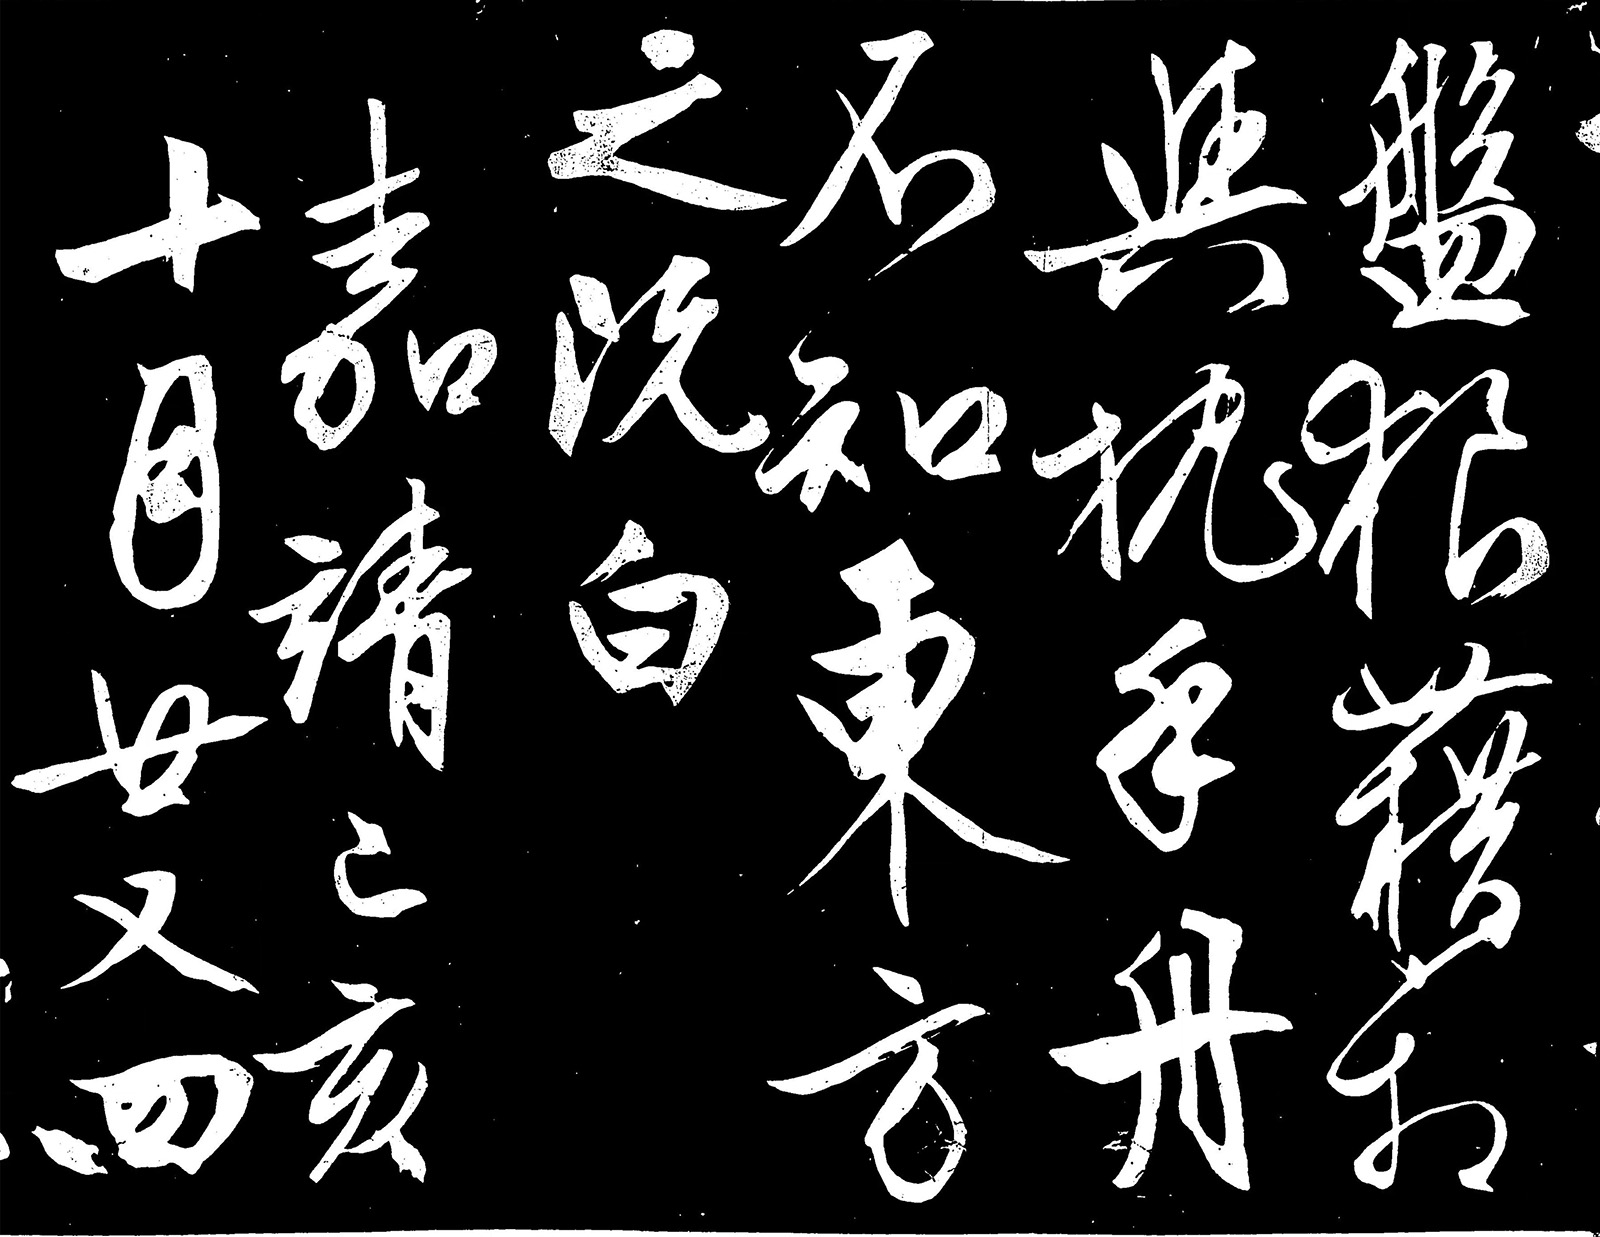 盤狼藉相
與枕乎舟
不知東方
之既白
嘉靖己亥
十月廿又四